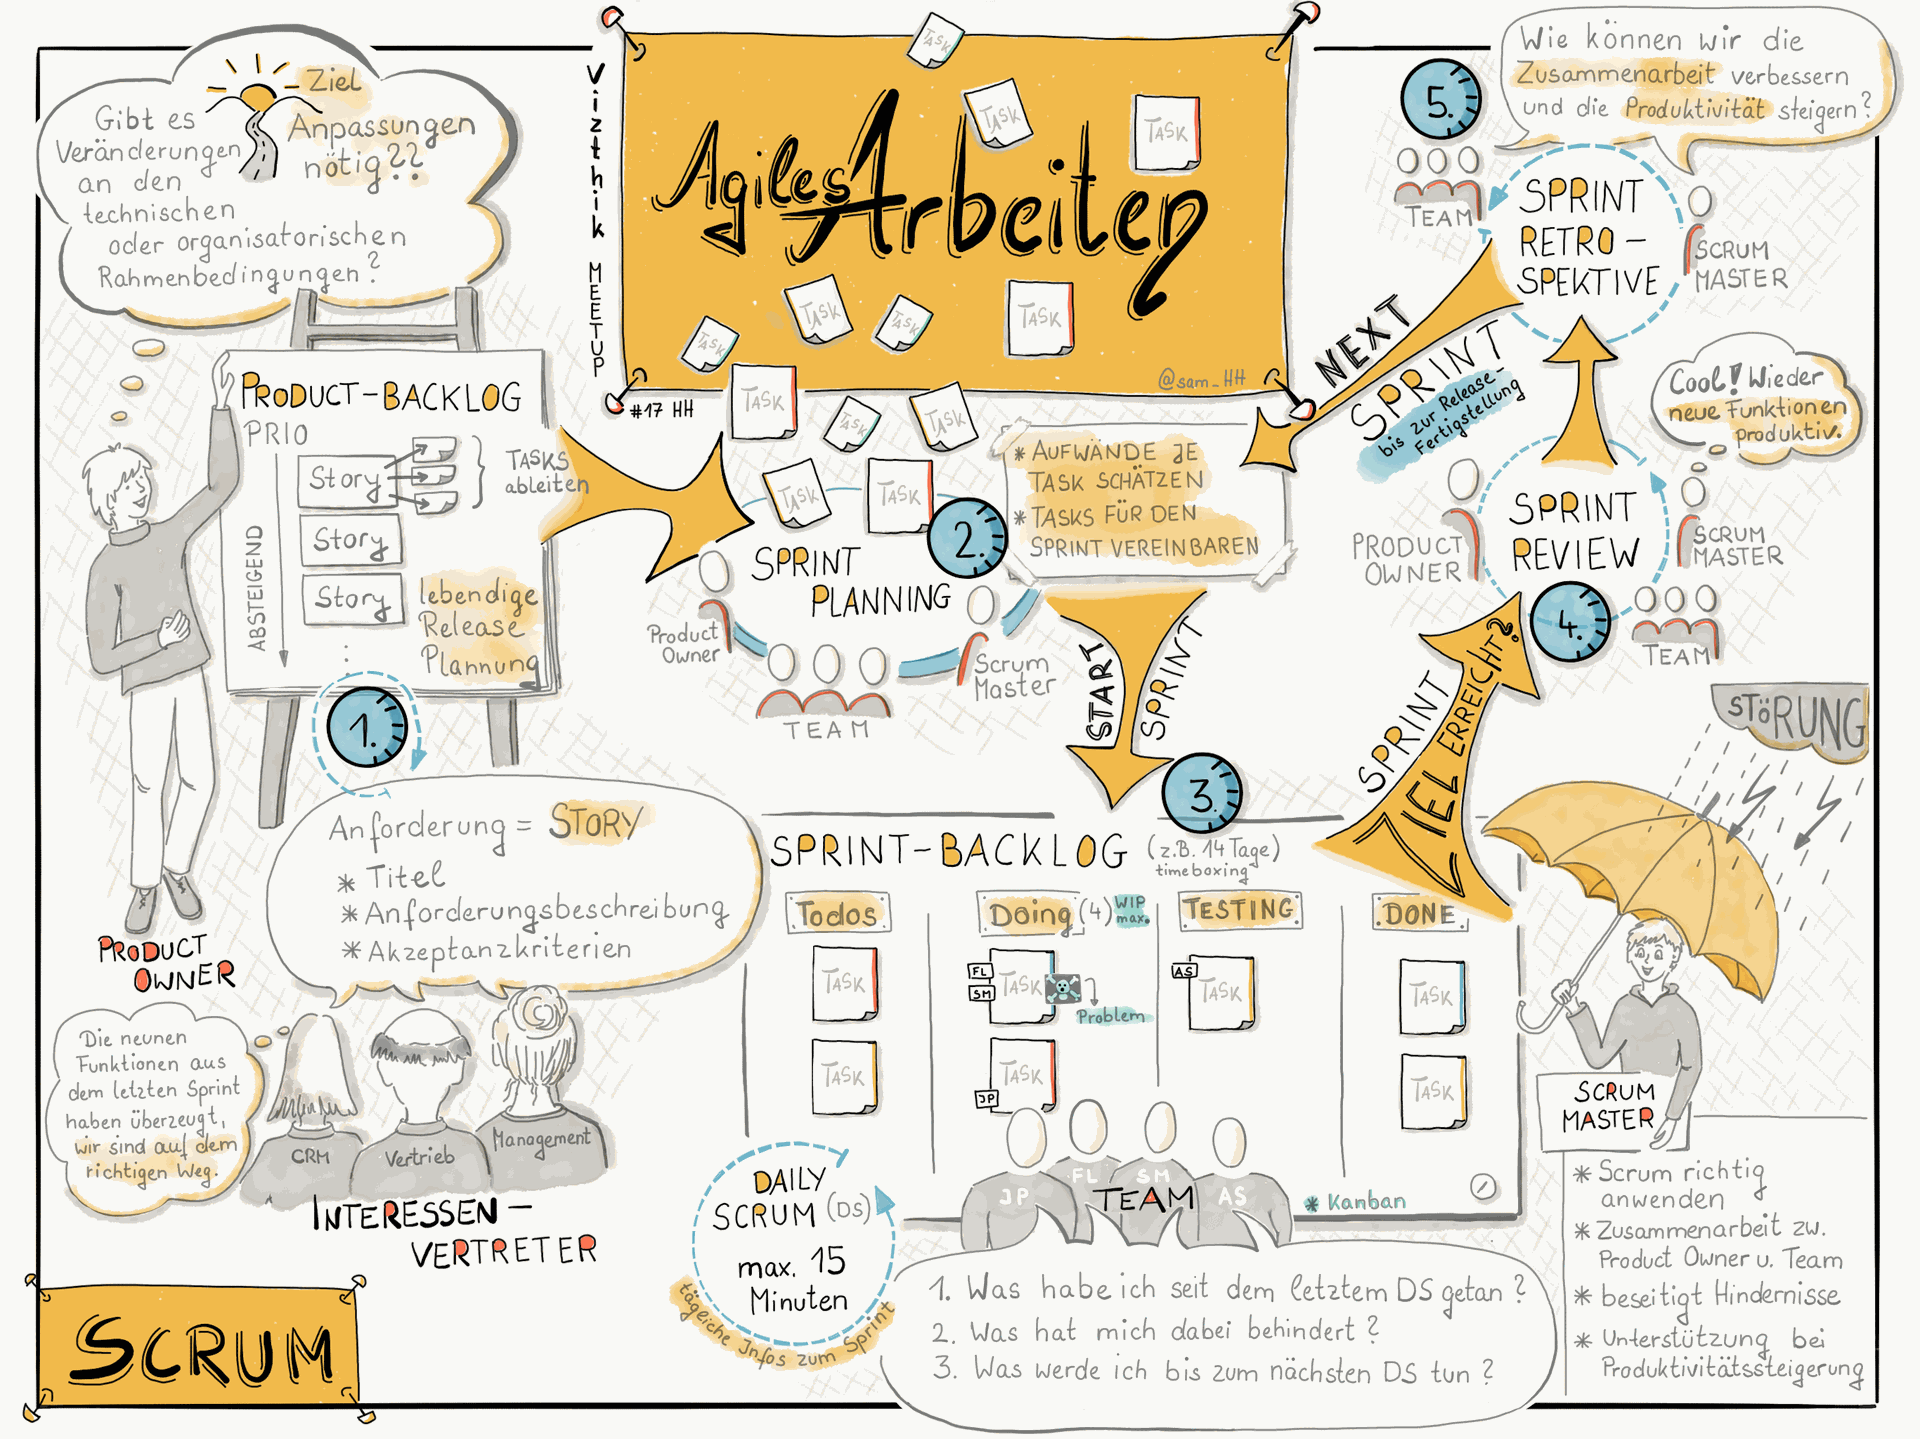 Vizthik MEETUP
#17 HH
Agiles Arbeiten
@sam_HH
TASK
TASK
TASK
TASK
TASK
TASK
TASK
TASK
TASK
TASK
TASK
TASK
Ziel
Anpassungen
nötig??
Gibt es
Veränderungen
an den
technischen
oder organisatorischen
Rahmenbedingungen?
PRODUCT-BACKLOG
PRIO
ABSTEIGEND
Story
Story
Story
TASKS
ableiten
lebendige
Release
Plannung
1.
PRODUCT
OWNER
Anforderung = STORY
* Titel
* Anforderungsbeschreibung
* Akzeptanzkriterien
Die neunen
Funktionen aus
dem letzten Sprint
haben überzeugt,
wir sind auf dem
richtigen Weg.
CRM
Vertrieb
Management
INTERESSEN-
VERTRETER
SCRUM
2.
SPRINT
PLANNING
Product
Owner
TEAM
Scrum
Master
* AUFWÄNDE JE
TASK SCHÄTZEN
* TASKS FÜR DEN
SPRINT VEREINBAREN
START
SPRINT
3.
SPRINT-BACKLOG
(z.B. 14 Tage)
timeboxing
Todos
Doing (4) WIP
max.
TESTING
DONE
TASK
TASK
FL
SM
TASK
Problem
JP
TASK
AS
TASK
TASK
TASK
JP
FL
SM
AS
TEAM
* Kanban
DAILY
SCRUM (DS)
max. 15
Minuten
tägliche Infos zum Sprint
1. Was habe ich seit dem letztem DS getan?
2. Was hat mich dabei behindert?
3. Was werde ich bis zum nächsten DS tun?
SPRINT
ZIEL ERREICHT?
4.
SPRINT
REVIEW
PRODUCT
OWNER
SCRUM
MASTER
TEAM
Cool! Wieder
neue Funktionen
produktiv.
5.
SPRINT
RETRO-
SPEKTIVE
TEAM
SCRUM
MASTER
Wie können wir die
Zusammenarbeit verbessern
und die Produktivität steigern?
NEXT
SPRINT
bis zur Release-
Fertigstellung
STÖRUNG
SCRUM
MASTER
* Scrum richtig
anwenden
* Zusammenarbeit zw.
Product Owner u. Team
* beseitigt Hindernisse
* Unterstützung bei
Produktivitätssteigerung